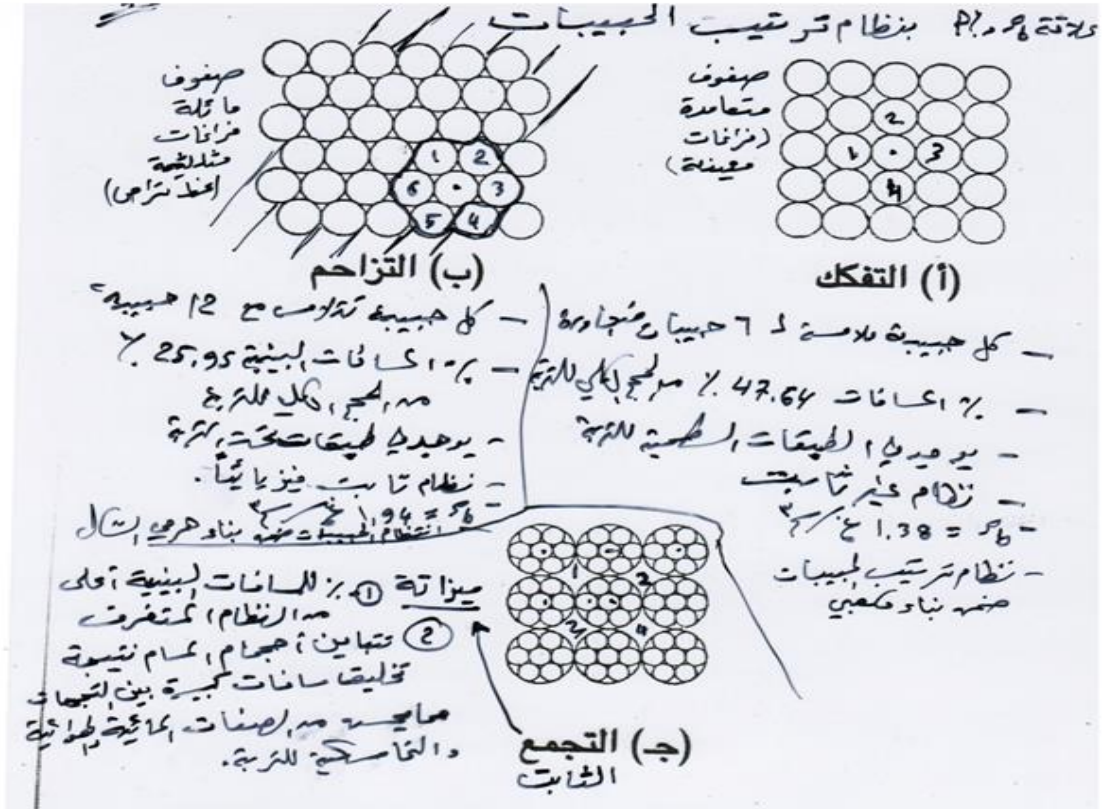 علاقة ρb و P% بنظام ترتيب الحبيبات
صفوف
متعامدة
(فراغات
معينية)
2
1 3
4
(أ) التفكك
صفوف
مائلة
فراغات
مثلثية
1 2
6 3
5 4
(ب) التزاحم
- كل حبيبة ملامسة لـ 6 حبيبات متجاورة
- % المسافات 47.64 % من الحجم الكلي للتربة
- يوجد في الطبقات السطحية للتربة
- نظام غير ثابت
- ρb = 1.38 غ/سم٣
- نظام ترتيب الحبيبات
ضمن بناء مكعبي
- كل حبيبة تتلامس مع 12 حبيبة
- % المسافات البينية 25.95 %
من الحجم الكلي للتربة
- يوجد في طبقات تحت التربة
- نظام ثابت فيزيائياً.
- ρb = 1.94 غ/سم٣
انتظام الحبيبات ضمن بناء هرمي الشكل
1 2
3 4
(جـ) التجمع
الثابت
ميزاته ① % للمسافات البينية أعلى
من النظام المتفرق
② تتباين أحجام المسام نتيجة
تخليق مسافات كبيرة بين التجمعات
مما يحسن من الصفات المائية والهوائية
والتماسكية للتربة.